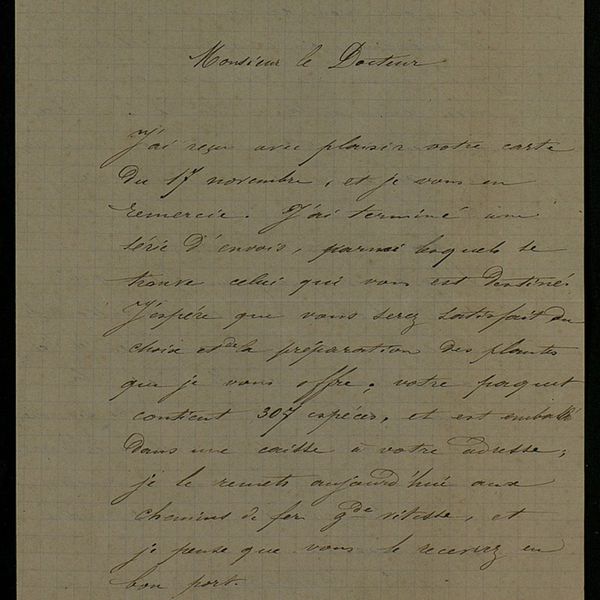 Monsieur le Docteur
J'ai reçu avec plaisir votre carte
du 17 novembre, et je vous en
remercie. J'ai terminé une
série d'envois, parmi lesquels se
trouve celui qui vous est destiné.
J'espére que vous serez satisfait du
choix et de la préparation des plantes
que je vous offre; votre paquet
contient 307 espéces, et est emballé
dans une caisse à votre adresse;
je le remets aujourd'hui aux
chemins de fer gde vitesse, et
je pense que vous le recevrez en
bon port.